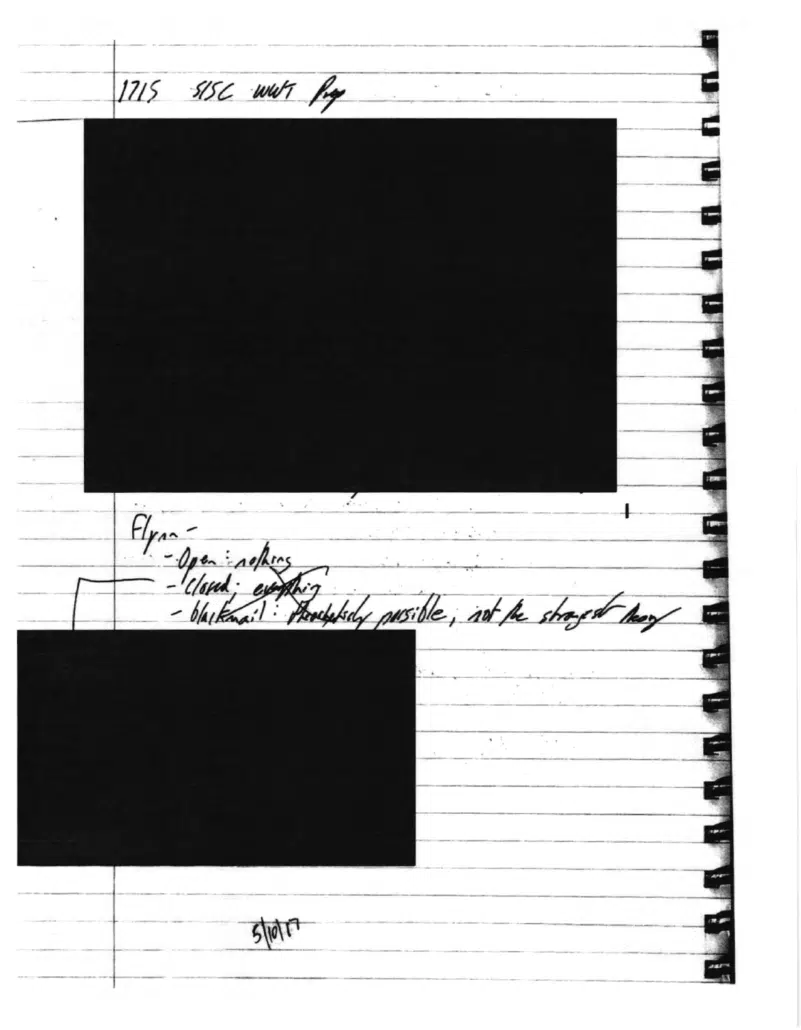 1715 SISC WWT Prep
Flynn -
- Open: nothing
- Closed; everything
- blackmail: theoretically possible, not the strongest theory
5/10/17